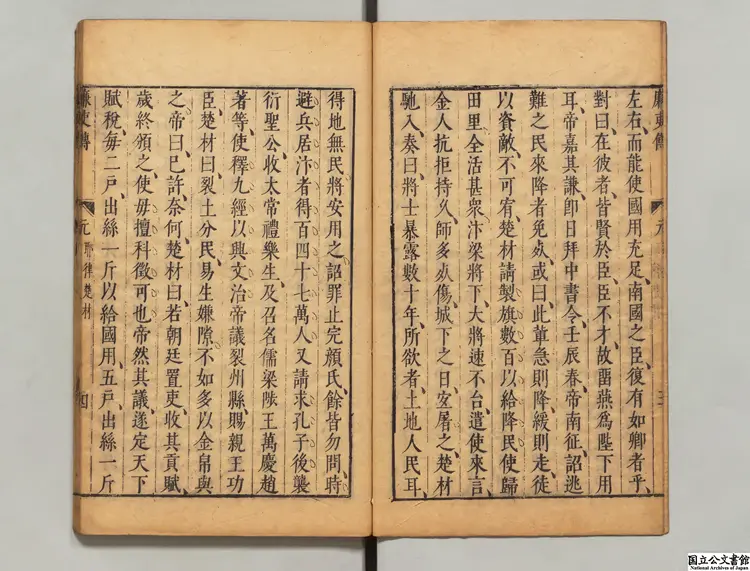 廉吏傳
元
三
左右而能使國用充足南國之臣復有如卿者乎
對曰在彼者皆賢於臣臣不才故畱燕爲陛下用
耳帝嘉其謙卽日拜中書令壬辰春帝南征詔逃
難之民來降者免死或曰此軰急則降緩則走徒
以資敵不可宥楚材請製旗數百以給降民使歸
田里全活甚衆汴梁將下大將速不台遣使來言
金人抗拒持久師多死傷城下之日宜屠之楚材
馳入奏曰將士暴露數十年所欲者土地人民耳
得地無民將安用之詔罪止完顏氏餘皆勿問時
避兵居汴者得百四十七萬人又請求孔子後襲
衍聖公收太常禮樂生及召名儒梁陟王萬慶趙
著等使釋九經以興文治帝議裂州縣賜親王功
臣楚材曰裂土分民易生嫌隙不如多以金帛與
之帝曰已許奈何楚材曰若朝廷置吏收其貢賦
歲終頒之使毋擅科徵可也帝然其議遂定天下
賦稅每二戶出絲一斤以給國用五戶出絲一斤
廉吏傳
元
耶律楚材
四
国立公文書館
National Archives of Japan